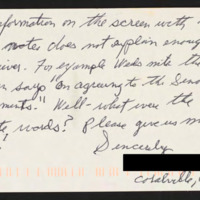 formation on the screen with
note does not explain enough
iver. For example Wade mite the
say "on agreeing to the Sena
ments." Well - what were the
te words? Please give us m
!
Sincerely
Coralville,